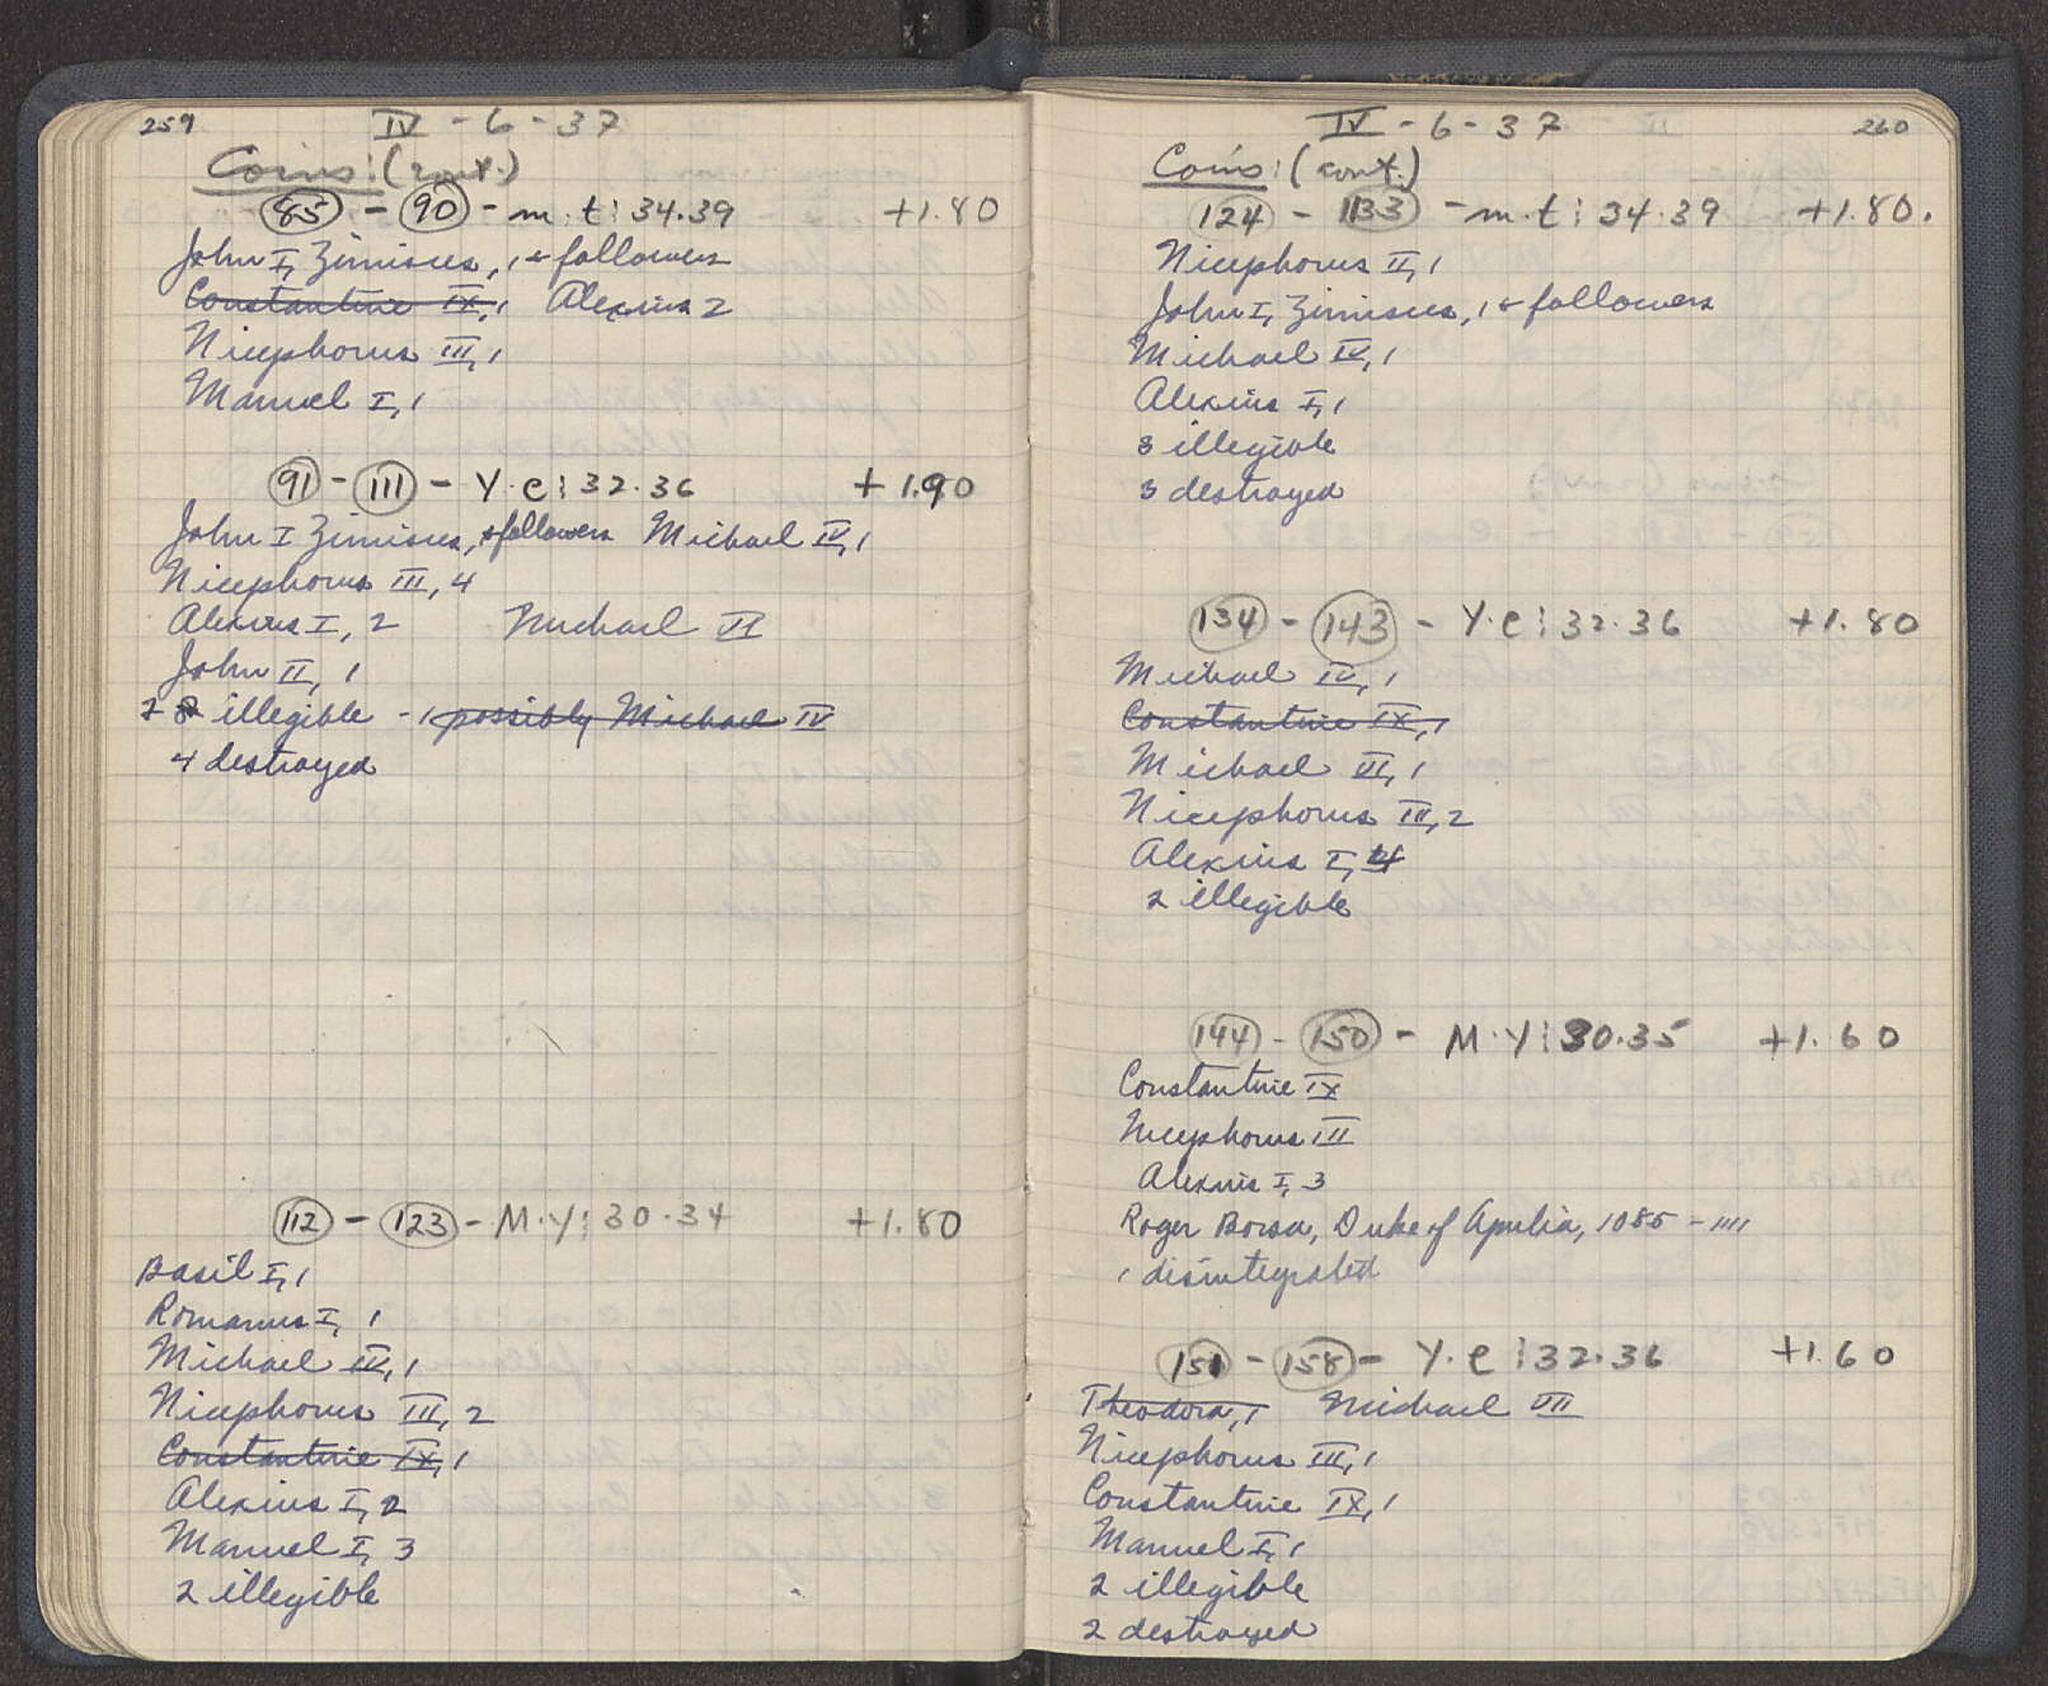 259
IV - 6 - 37
Coins: (cont.)
85 - 90 - m.t: 34.39 +1.80
John I, Zimisces, 1 & followers
Constantine IX, 1 Alexius 2
Nicephorus III, 1
Manuel I, 1
91 - 111 - Y.C: 32.36 + 1.90
John I Zimisces, & followers Michael IV, 1
Nicephorus III, 4
Alexius I, 2 Michael VI
John II, 1
7 8 illegible - 1 possibly Michael IV
4 destroyed
112 - 123 - M.Y: 30.34 +1.80
Basil I, 1
Romanus I, 1
Michael IV, 1
Nicephorus III, 2
Constantine IX, 1
Alexius I, 2
Manuel I, 3
2 illegible
260
IV - 6 - 37
Coins: (cont.)
124 - 133 - m.t: 34.39 +1.80.
Nicephorus II, 1
John I, Zimisces, 1 & followers
Michael IV, 1
Alexius I, 1
3 illegible
3 destroyed
134 - 143 - Y.C: 32.36 +1.80
Michael IV, 1
Constantine IX, 1
Michael VI, 1
Nicephorus III, 2
Alexius I, 4
2 illegible
144 - 150 - M.Y: 30.35 +1.60
Constantine IX
Nicephorus III
Alexius I, 3
Roger Borsa, Duke of Apulia, 1085 - 1111
1 disintegrated
151 - 158 - Y.C: 32.36 +1.60
Theodora, 1 Michael VII
Nicephorus III, 1
Constantine IX, 1
Manuel I, 1
2 illegible
2 destroyed